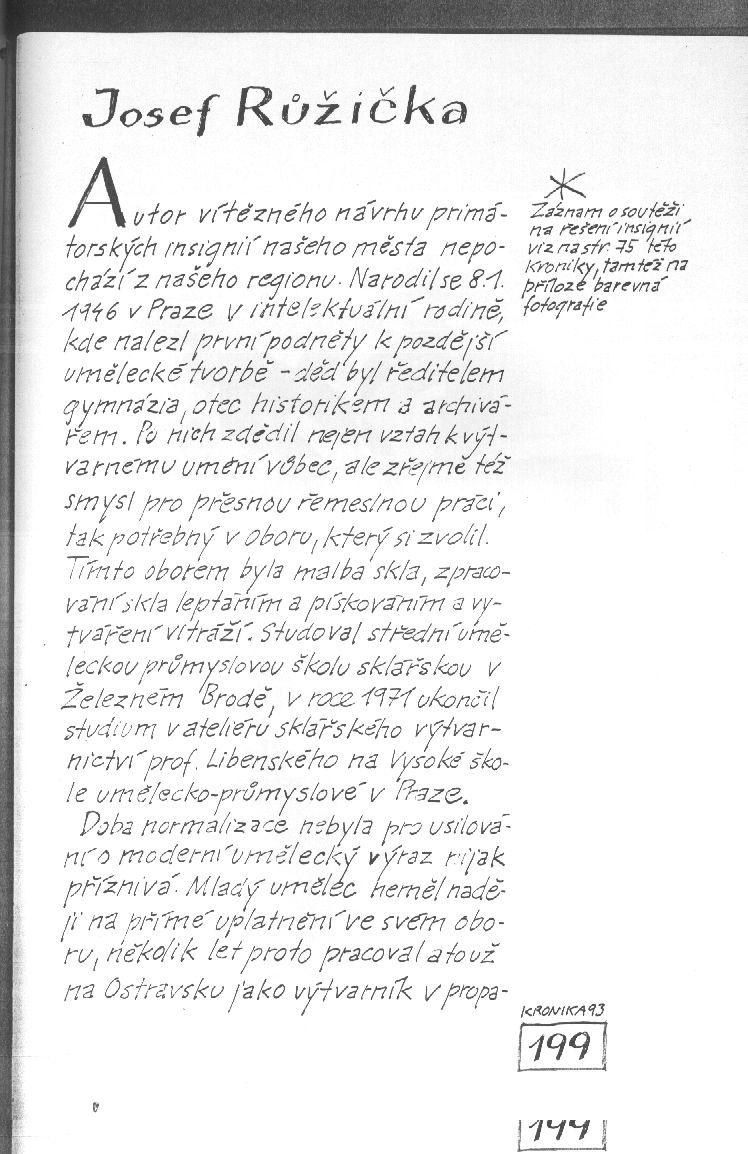 Josef Růžička
Autor vítězného návrhu primá-
torských insignií našeho města nepo-
chází z našeho regionu. Narodil se 8.1.
1946 v Praze v intelektuální rodině,
kde nalezl první podněty k pozdější
umělecké tvorbě - děd byl ředitelem
gymnázia, otec historikem a archivá-
řem. Po nich zdědil nejen vztah k výt-
varnému umění vůbec, ale zřejmě též
smysl pro přesnou řemeslnou práci,
tak potřebný v oboru, který si zvolil.
Tímto oborem byla malba skla, zpraco-
vání skla leptáním a pískováním a vy-
tváření vitráží. Studoval střední umě-
leckou průmyslovou školu sklářskou v
Železném Brodě, v roce 1971 ukončil
studium v atelieru sklářského výtvar-
nictví prof. Libenského na Vysoké ško-
le umělecko-průmyslové v Praze.
Doba normalizace nebyla pro usilová-
ní o moderní umělecký výraz nijak
příznivá. Mladý umělec neměl nadě-
ji na přímé uplatnění ve svém obo-
ru, několik let proto pracoval a to už
na Ostravsku jako výtvarník v propa-
*
Záznam o soutěži
na řešení insignií
viz na str. 75 této
kroniky, tamtéž na
příloze barevná
fotografie
KRONIKA 93
199